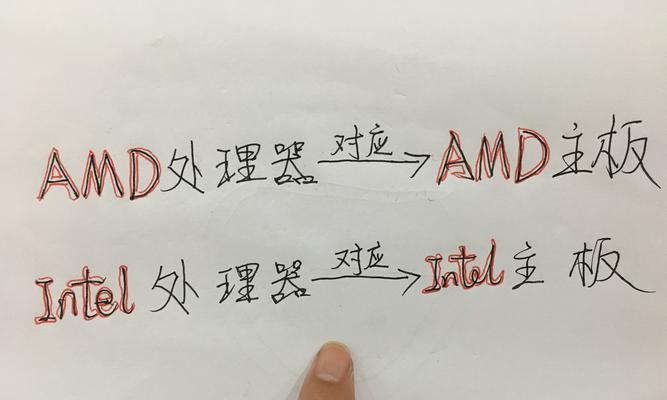 AMD处理器 对应→ AMD主板
Intel 处理器 对应→ Intel主板